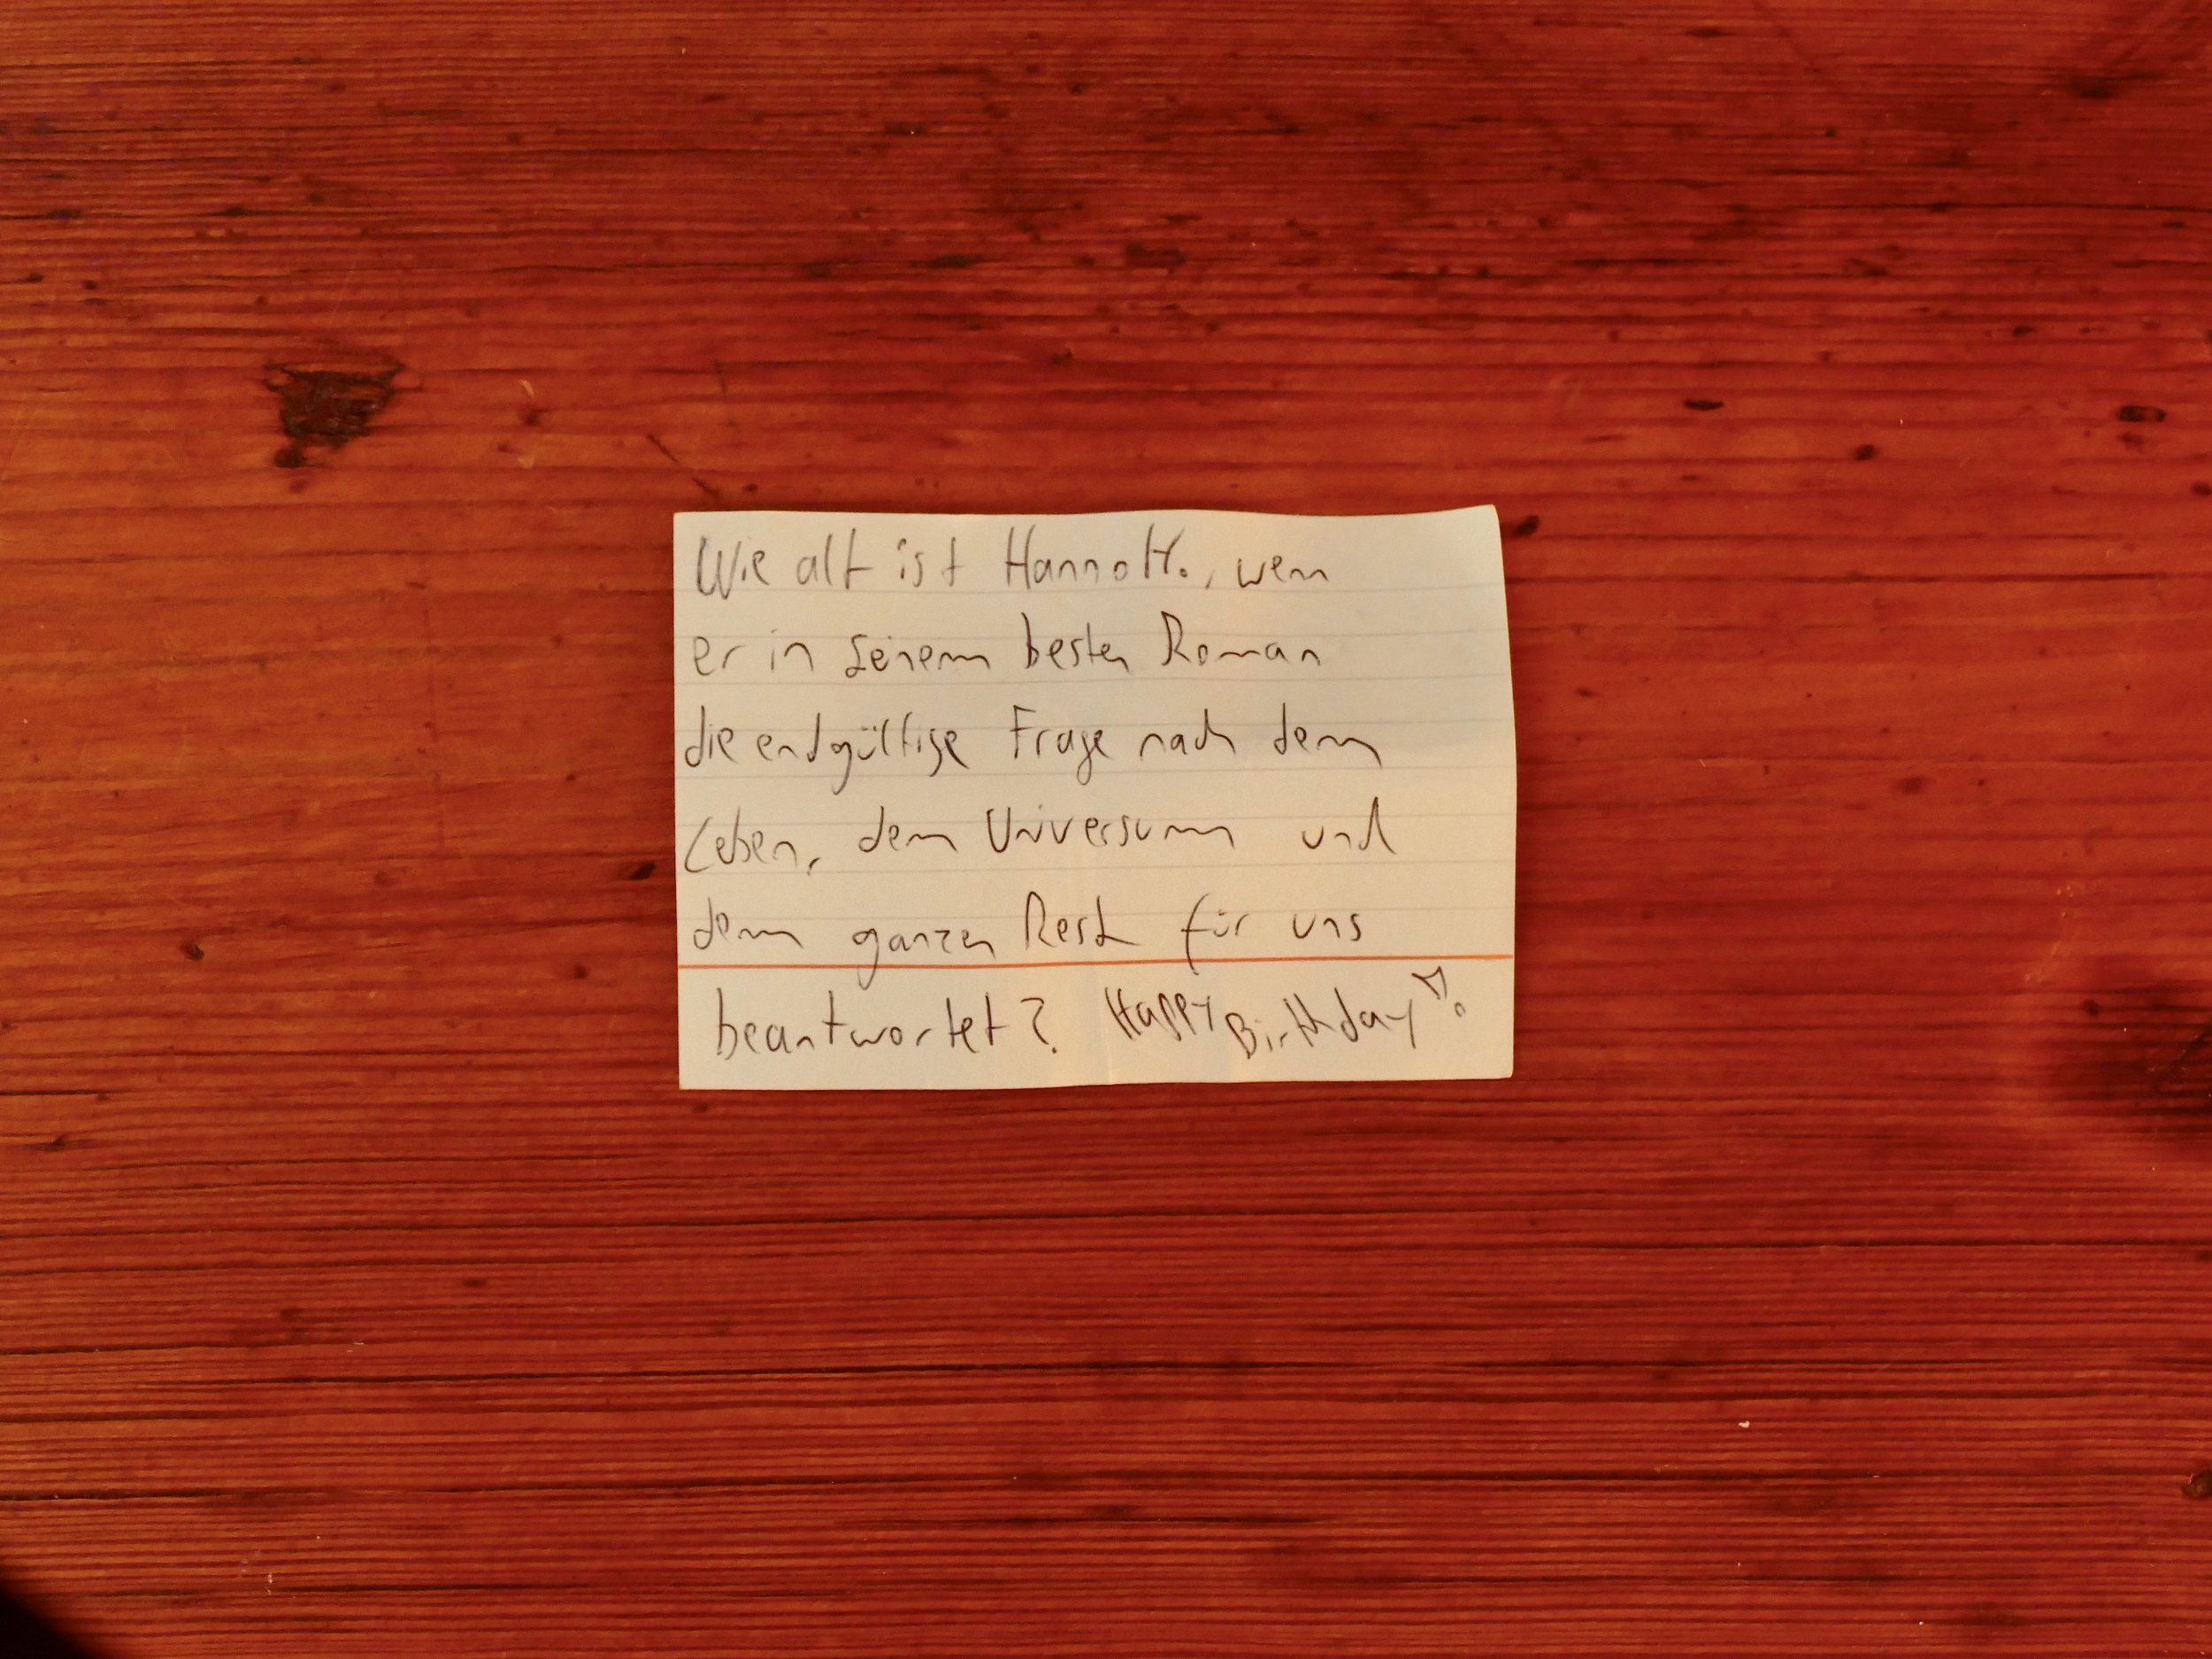 Wie alt ist Hanno H., wenn
er in seinem besten Roman
die endgültige Frage nach dem
Leben, dem Universum und
dem ganzen Rest für uns
beantwortet? Happy Birthday!